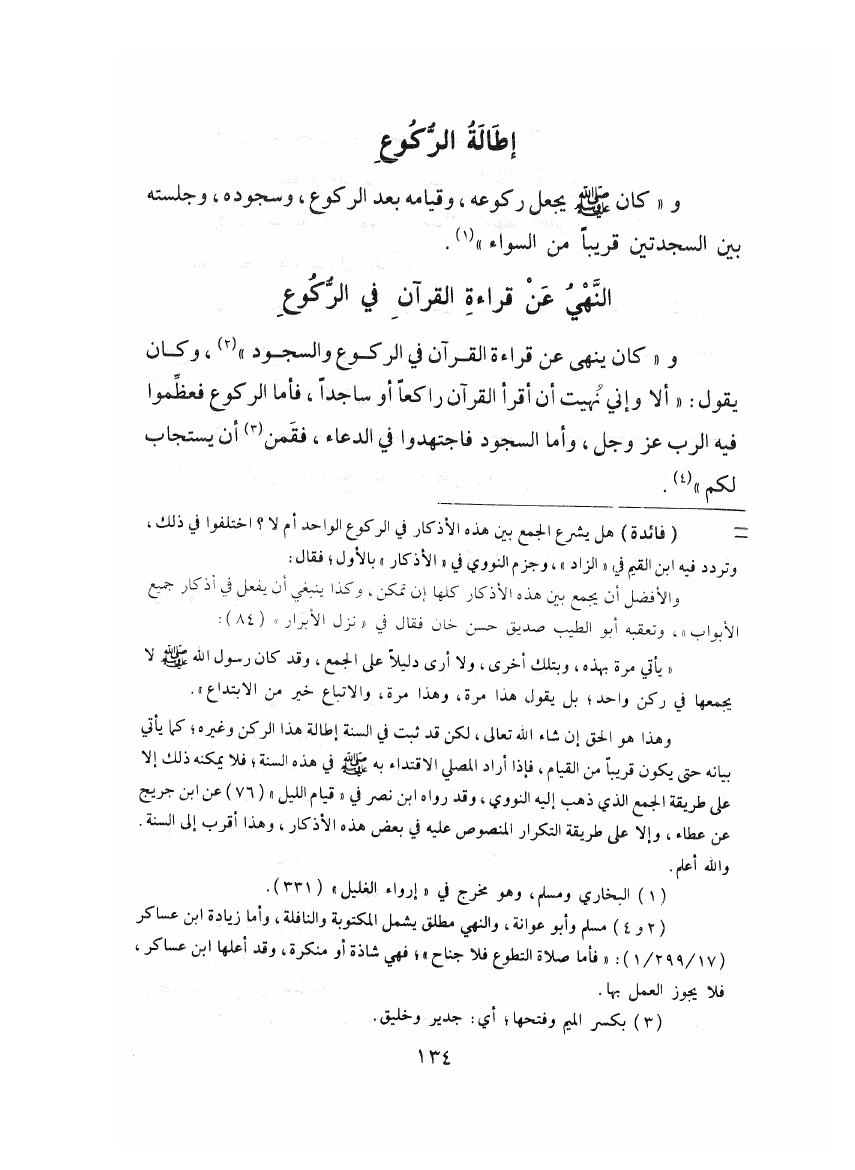 إِطَالَةُ الرُّكُوعِ
و « كان ﷺ يجعل ركوعه ، وقيامه بعد الركوع ، وسجوده ، وجلسته
بين السجدتين قريباً من السواء »(١) .
النَّهْيُ عَنْ قراءةِ القرآنِ في الرُّكُوعِ
و « كان ينهى عن قراءة القرآن في الركوع والسجود »(٢) ، وكان
يقول : « ألا وإني نُهيت أن أقرأ القرآن راكعاً أو ساجداً ، فأما الركوع فعظِّموا
فيه الرب عز وجل ، وأما السجود فاجتهدوا في الدعاء ، فقَمن(٣) أن يستجاب
لكم »(٤) .
= ( فائدة ) هل يشرع الجمع بين هذه الأذكار في الركوع الواحد أم لا ؟ اختلفوا في ذلك ،
وتردد فيه ابن القيم في « الزاد » ، وجزم النووي في « الأذكار » بالأول ؛ فقال :
والأفضل أن يجمع بين هذه الأذكار كلها إن تمكن ، وكذا ينبغي أن يفعل في أذكار جميع
الأبواب » ، وتعقبه أبو الطيب صديق حسن خان فقال في « نزل الأبرار » (٨٤) :
« يأتي مرة بهذه ، وبتلك أخرى ، ولا أرى دليلاً على الجمع ، وقد كان رسول الله ﷺ لا
يجمعها في ركن واحد ؛ بل يقول هذا مرة ، وهذا مرة ، والاتباع خير من الابتداع » .
وهذا هو الحق إن شاء الله تعالى ، لكن قد ثبت في السنة إطالة هذا الركن وغيره ؛ كما يأتي
بيانه حتى يكون قريباً من القيام ، فإذا أراد المصلي الاقتداء به ﷺ في هذه السنة ؛ فلا يمكنه ذلك إلا
على طريقة الجمع الذي ذهب إليه النووي ، وقد رواه ابن نصر في « قيام الليل » (٧٦) عن ابن جريج
عن عطاء ، وإلا على طريقة التكرار المنصوص عليه في بعض هذه الأذكار ، وهذا أقرب إلى السنة .
والله أعلم .
(١) البخاري ومسلم ، وهو مخرج في « إرواء الغليل » (٣٣١) .
(٢ و ٤) مسلم وأبو عوانة ، والنهي مطلق يشمل المكتوبة والنافلة ، وأما زيادة ابن عساكر
(١/٢٩٩/١٧) : « فأما صلاة التطوع فلا جناح » ؛ فهي شاذة أو منكرة ، وقد أعلها ابن عساكر ،
فلا يجوز العمل بها .
(٣) بكسر الميم وفتحها ؛ أي : جدير وخليق .
١٣٤